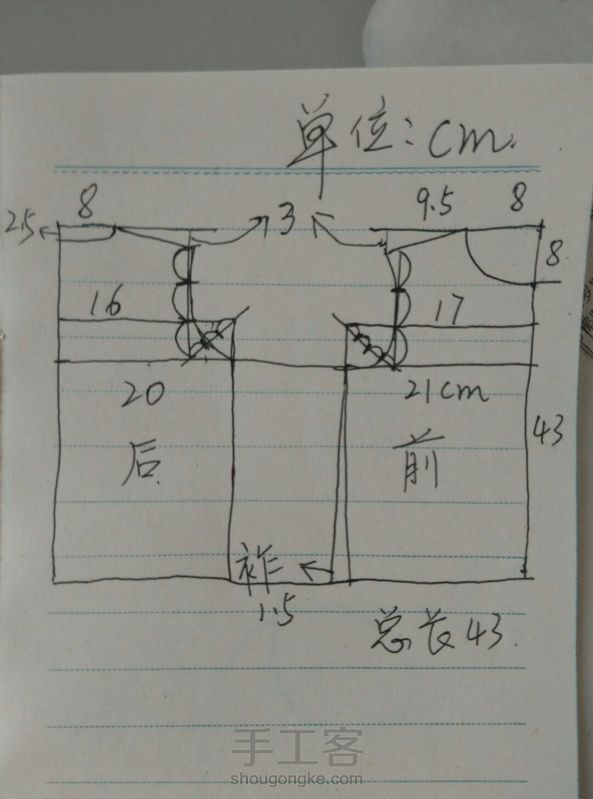 单位:cm.
8 3 9.5 8
2.5
8
16 17
20 21cm
43
后 前
祚
1.5
总长43.
手工客
shougongke.com